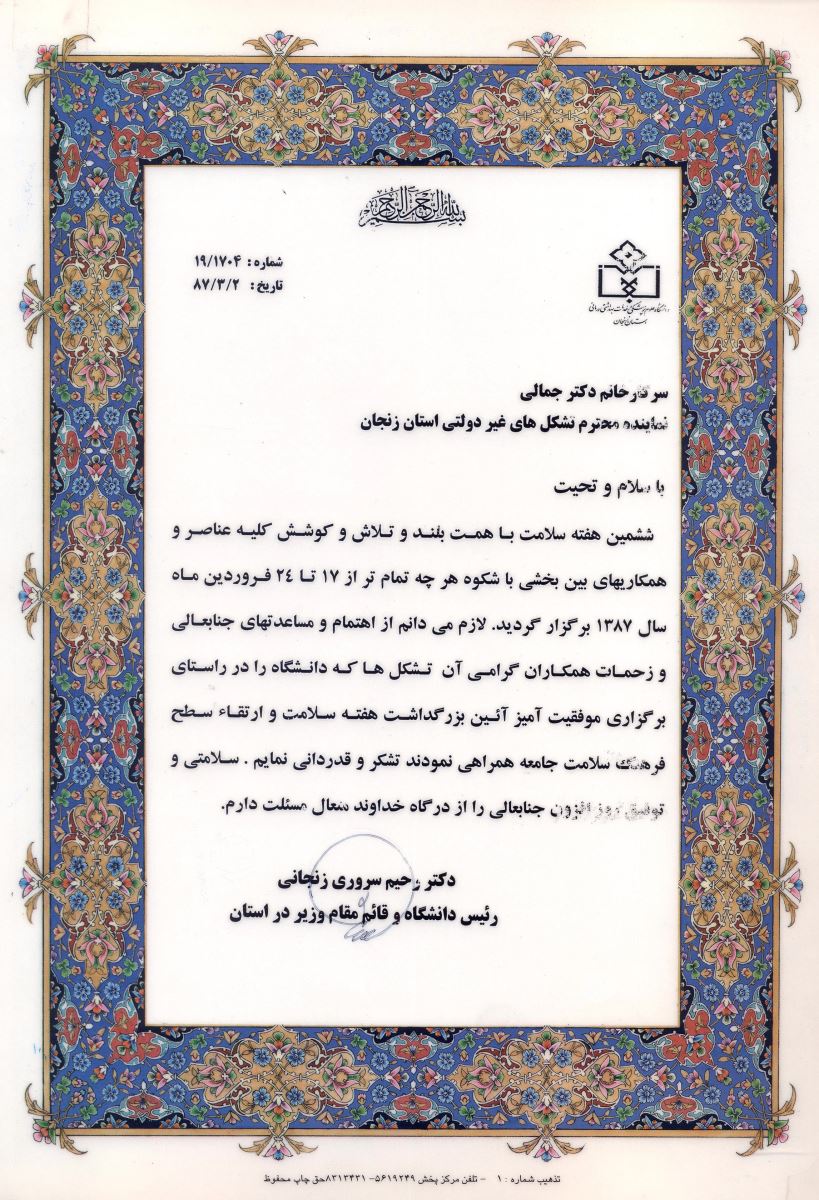 بسم الله الرحمن الرحیم
شماره: ۱۹/۱۷۰۴
تاریخ: ۸۷/۳/۲
دانشگاه علوم پزشکی و خدمات بهداشتی درمانی
استان زنجان
سرکار خانم دکتر جمالی
نماینده محترم تشکل های غیر دولتی استان زنجان
با سلام و تحیت
ششمین هفته سلامت با همت بلند و تلاش و کوشش کلیه عناصر و
همکاریهای بین بخشی با شکوه هر چه تمام تر از ۱۷ تا ۲۴ فروردین ماه
سال ۱۳۸۷ برگزار گردید. لازم می دانم از اهتمام و مساعدتهای جنابعالی
و زحمات همکاران گرامی آن تشکل ها که دانشگاه را در راستای
برگزاری موفقیت آمیز آئین بزرگداشت هفته سلامت و ارتقاء سطح
فرهنگ سلامت جامعه همراهی نمودند تشکر و قدردانی نمایم . سلامتی و
توفیق روز افزون جنابعالی را از درگاه خداوند متعال مسئلت دارم.
دکتر رحیم سروری زنجانی
رئیس دانشگاه و قائم مقام وزیر در استان
تذهیب شماره : ۱ - تلفن مرکز پخش ۵۶۱۹۲۴۹- ۸۳۱۳۴۳۱حق چاپ محفوظ